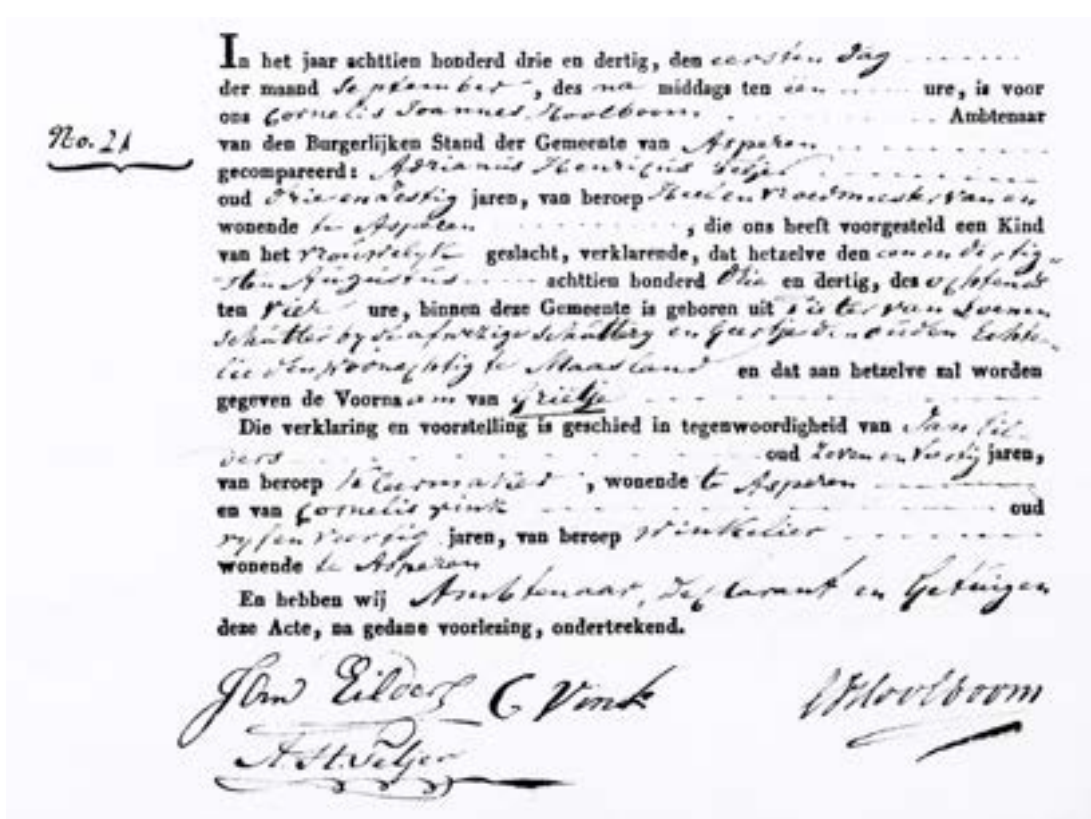 In het jaar achttien honderd drie en dertig, den eersten dag
der maand September, des na middags ten een ure, is voor
ons Cornelis Joannes Hoolboom Ambtenaar
No. 21
van den Burgerlijken Stand der Gemeente van Asperen
gecompareerd: Adrianus Henricus
oud drie en dertig jaren, van beroep Heel en Vroedmeester van en
wonende te Asperen, die ons heeft voorgesteld een Kind
van het vrouwelyk geslacht, verklarende, dat hetzelve den een en dertig-
sten Augustus achttien honderd drie en dertig, des ochtends
ten vier ure, binnen deze Gemeente is geboren uit Pieter van Loenen
schutter by de afwezige schuttery en Geertje den ouden Echte-
lieden woonachtig te Maasland en dat aan hetzelve zal worden
gegeven de Voornaam van Grietje
Die verklaring en voorstelling is geschied in tegenwoordigheid van Jan Eil-
ders oud zeven en veertig jaren,
van beroep, wonende te Asperen
en van Cornelis Vink oud
vyf en veertig jaren, van beroep Winkelier
wonende te Asperen
En hebben wij Ambtenaar, Declarant en Getuigen
deze Acte, na gedane voorlezing, onderteekend.
Jan Eilders C Vink CJHoolboom
A. H.